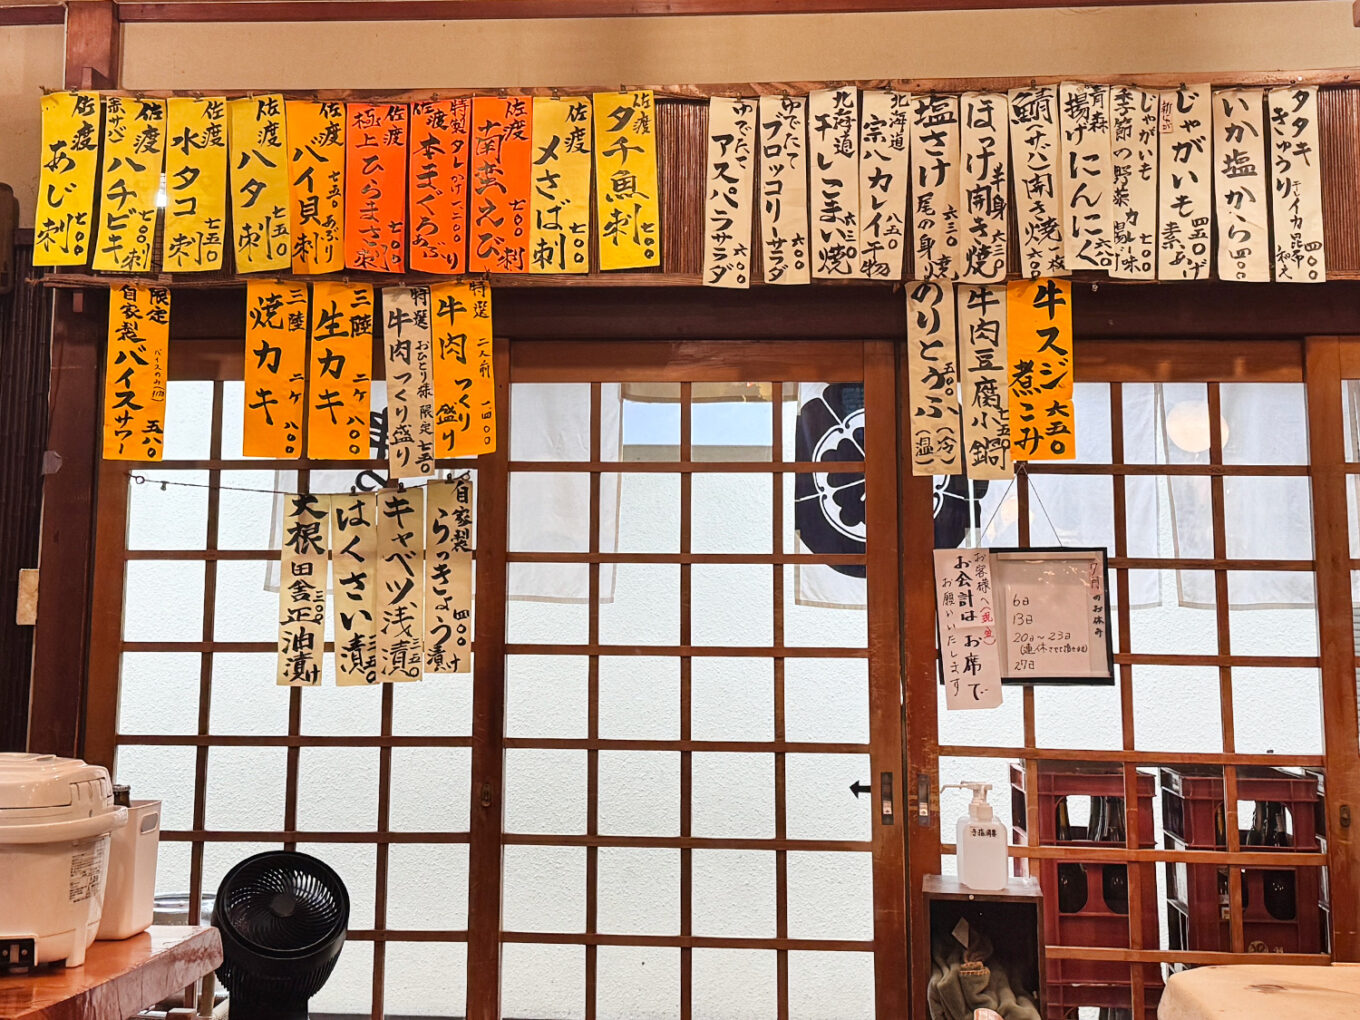 佐渡 あじ刺 七〇〇
赤サバ 佐渡 ハチビキ刺 七〇〇
佐渡 水タコ刺 七五〇
佐渡 ハタ刺 七五〇
佐渡 バイ貝刺 七五〇 あぶり
佐渡 極上 ひらまさ刺 七〇〇
特製タレかけ 一二〇〇 佐渡 本まぐろあぶり
佐渡 南蛮えび刺 七〇〇
佐渡 〆さば刺 七〇〇
佐渡 タチ魚刺 七〇〇
ゆでたて アスパラサラダ 六〇〇
ゆでたて ブロッコリーサラダ 六〇〇
北海道 干しこまい焼 六三〇
北海道 宗八カレイ干物 八五〇
塩さけ尾の身焼 六三〇
ほっけ開き焼 半身 六三〇
鯖(サバ)開き焼 六〇〇 枚
青森 揚げにんにく 六八〇
じゃがいも 季節の野菜 カレー味 揚げ 七〇〇
じゃがいも素あげ 四五〇
いか塩から 四〇〇
タタキきゅうり 四〇〇
限定 自家製バイスサワー 五八〇
三陸 焼カキ 二ケ 八〇〇
三陸 生カキ 二ケ 八〇〇
特選 おひとり様限定 牛肉つくり盛り 七五〇
特選 二人前 牛肉つくり盛り 一四〇〇
のりとうふ 五〇〇 (温)(冷)
牛肉豆腐小鍋 七五〇
牛スジ煮こみ 六五〇
大根田舎正油漬け 三〇〇
はくさい漬 三五〇
キャベツ浅漬 三五〇
自家製 らっきょう漬け 四〇〇
お客様へ(現金)
お会計はお席で
お願いいたします
7月のお休み
6日
13日
20日〜23日
(連休させて頂きます)
27日
手指消毒